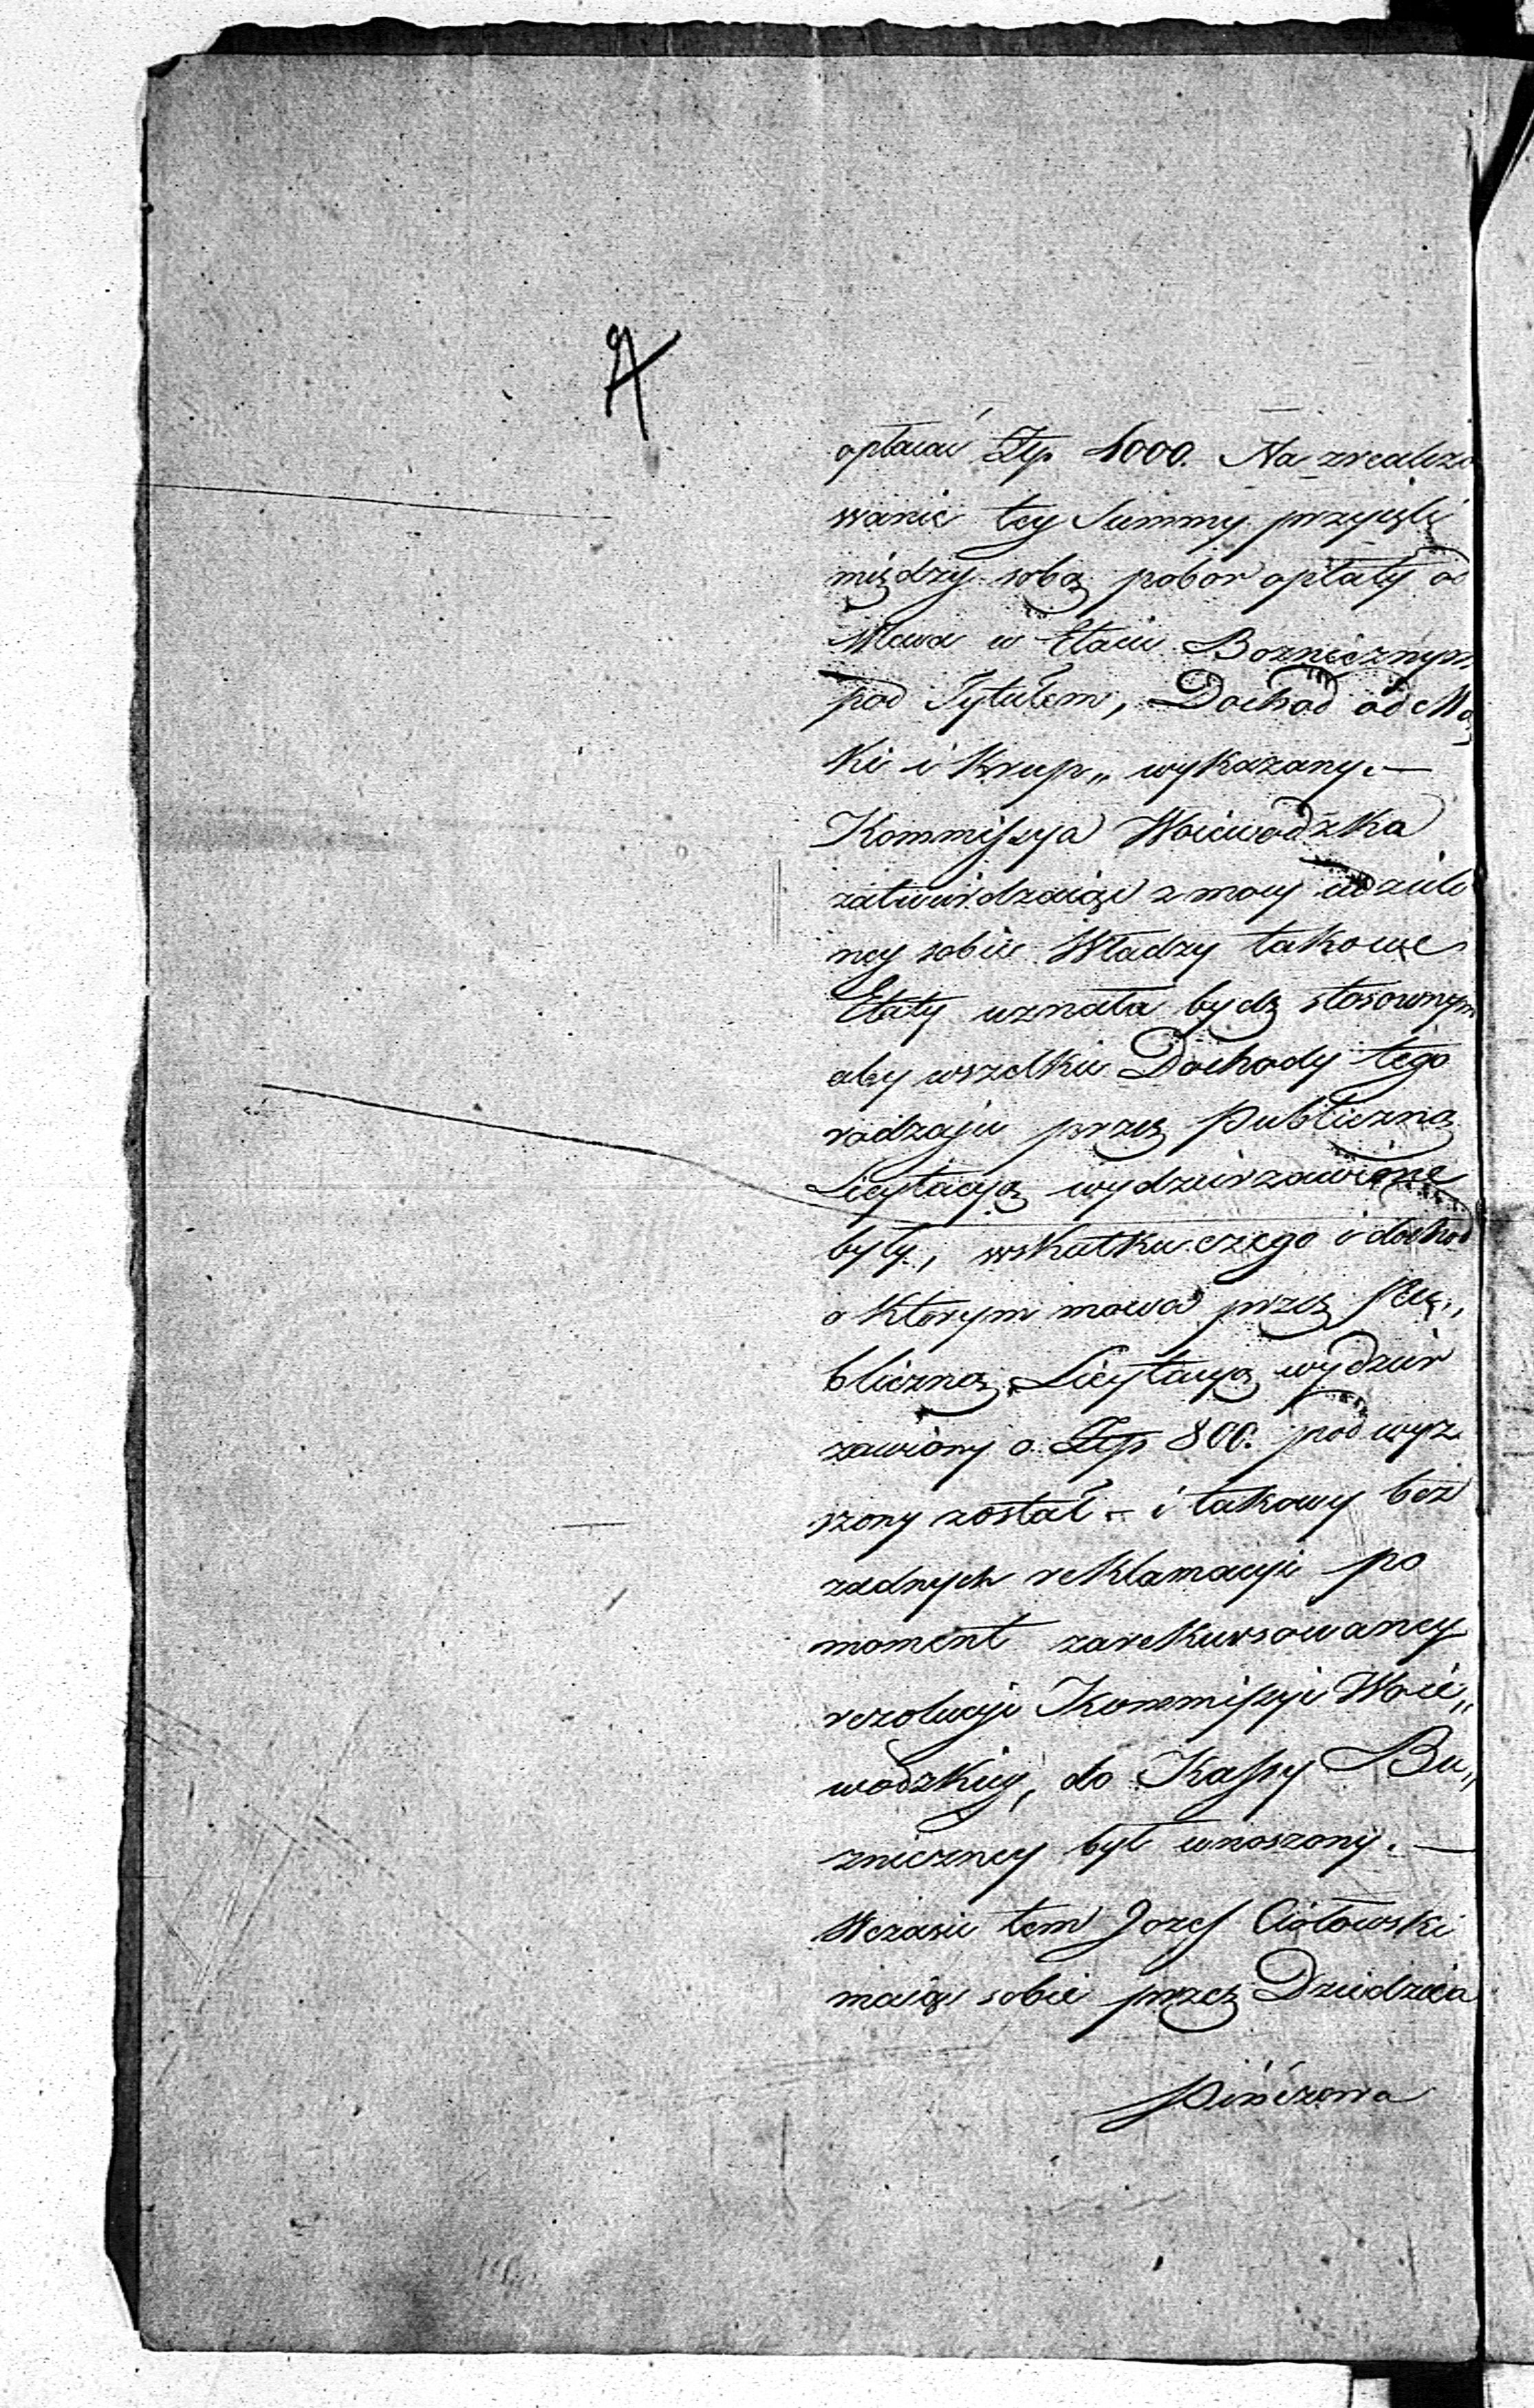 opłacać Złp 4000. Na zrealizo
wanie tey Summy przyięli
między sobą pobor opłaty od
Mlewa w Etacie Boznicznym
pod Tytułem, Dochod od Mą
ki i Krup„ wykazany. —
Kommissya Woiewodzka
zatwierdzaiąc z mocy udzielo
ney sobie Władzy takowe
Etaty uznała bydź stosownym
aby wszelkie Dochody tego
rodzaju przez publiczną
Licytacyą wydzierzawione
były, wskutku czego i dochod
o Ktorym mowa przez pu„
bliczną Licytacyą wydzier
zawiony o Złp 800. podwyz
szony został – i takowy bez
zadnych reklamacyi po
moment zarekursowaney
rezolucyi Kommissyi Woie„
wodzkiey, do Kassy Bu„
zniczney był wnoszony. —
Wczasie tem Jozef Ciołowski
maiąc sobie przez Dziedzica
Pinczowa